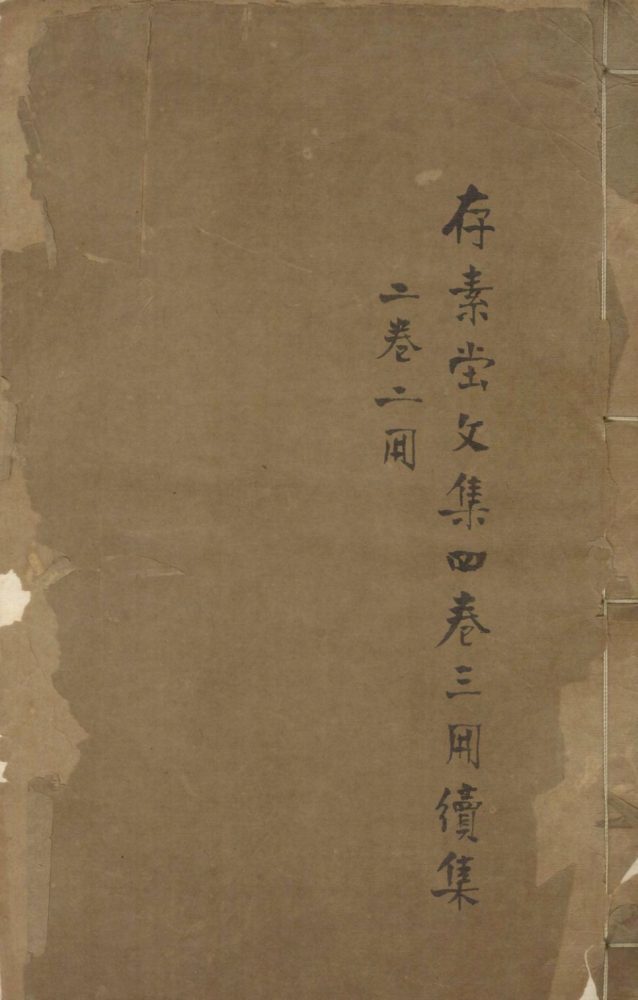 存素堂文集四卷三冊續集
二卷二冊